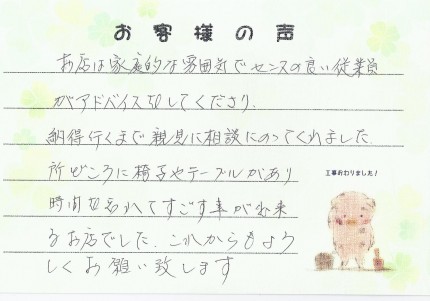 お客様の声
お店は家庭的な雰囲気でセンスの良い従業員
がアドバイスをしてくださり、
納得行くまで親見に相談にのってくれました。
所どころに椅子やテーブルがあり
工事おわりました!
時間を忘れてすごす事が出来
るお店でした。これからもよろ
しくお願い致します